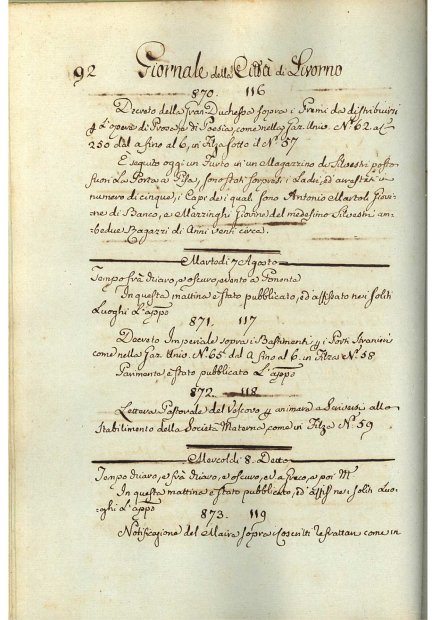 92 Giornale della Città di Livorno
870. 116
Decreto della Gran Duchessa sopra i Premi da distribuirsi
l'opere di Prosa, e di Poesia, come nella Gaz. Univ. N.º 62 al
250 dal a fino al 6, in Filza sotto il N.º 57
È seguito oggi un Furto in un Magazzino di Silvestri posto
fuori La Porta a Pisa, sono stati sorpresi i Ladri, ed arrestati in
numero di cinque, i Capi de i quali sono Antonio Martoli Giovi-
ne di Banco, e Marzinghi Giovine del medesimo Silvestri am-
bedue Ragazzi di Anni venti circa.
Martedì 7 Agosto
Tempo frà chiaro, e oscuro, vento a Ponente
In questa mattina è stato pubblicato, ed affissato nei soliti
Luoghi L'appo
871. 117
Decreto Imperiale sopra i Bastimenti i Porti Stranieri
come nella Gaz. Univ. N.º 65 dal a fino al 6. in Filza N.º 58
Parimente è stato pubblicato L'appo
872. 118
Lettera Pastorale del Vescovo animare a Scriversi allo
Stabilimento della Società Materna, come in Filza N.º 59
Mercoldì 8. Detto
Tempo chiaro, e frà chiaro, e oscuro, a Greco, e poi M
In questa mattina è stato pubblicato, ed affiss nei soliti Luo-
ghi L'appo
873. 119
Notificazione del Maire sopra Coscritti Refrattari come in